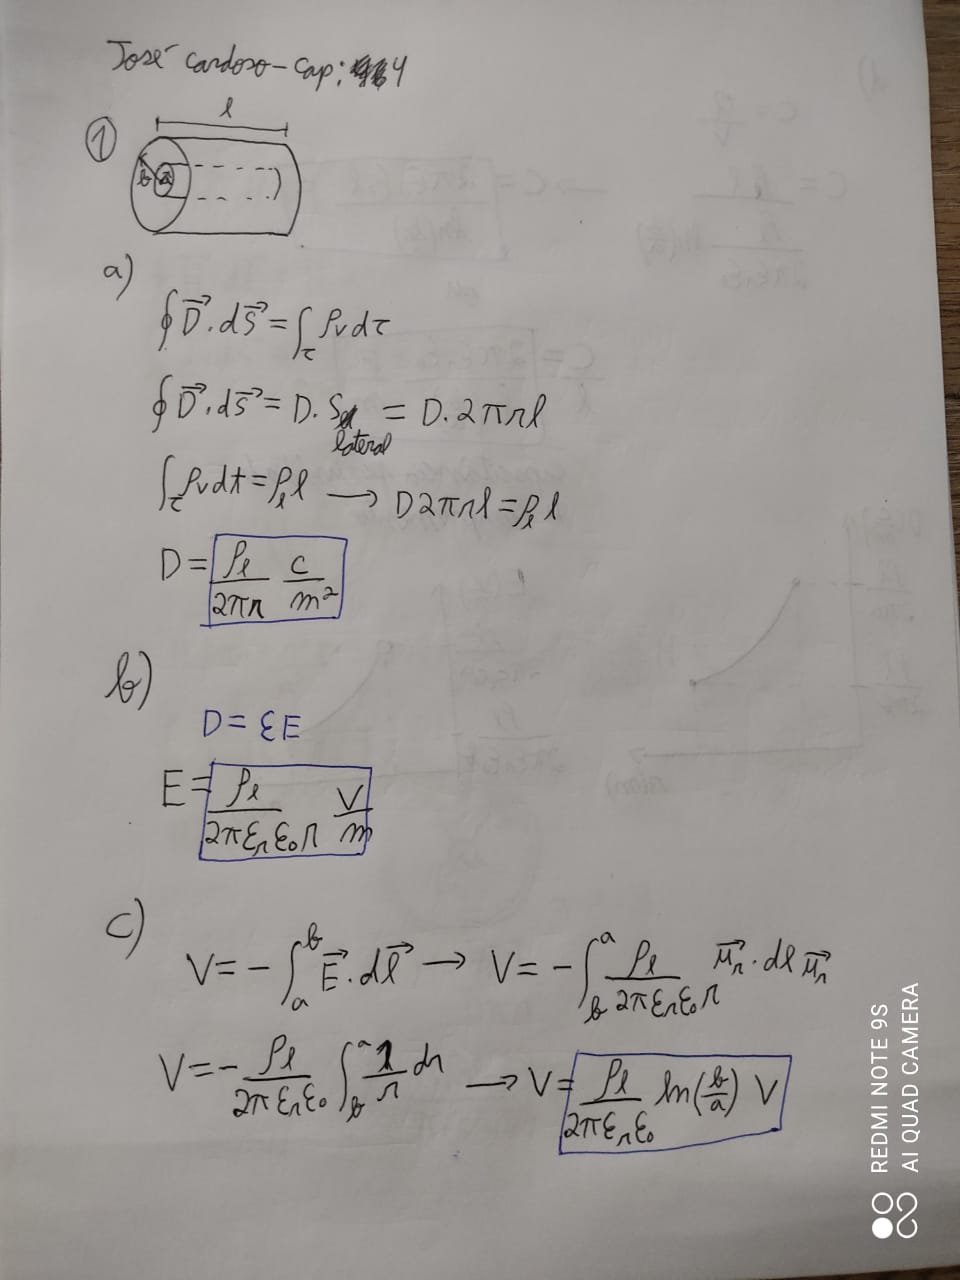 José Cardoso - Cap: 4
1
l
b a
a)
∮D⃗.dS⃗ = ∫τ ρv dτ
∮D⃗.dS⃗ = D.S lateral = D.2πrl
∫τ ρv dτ = ρl l → D2πrl = ρl l
D = ρl/2πr C/m²
b)
D = εE
E = ρl/2πεrε0r V/m
c)
V = -∫_a^b E⃗.dl⃗ → V = -∫_b^a ρl/2πεrε0r μ⃗r.dl μ⃗r
V = -ρl/2πεrε0 ∫_b^a 1/r dr → V = ρl/2πεrε0 ln(b/a) V
REDMI NOTE 9S
AI QUAD CAMERA